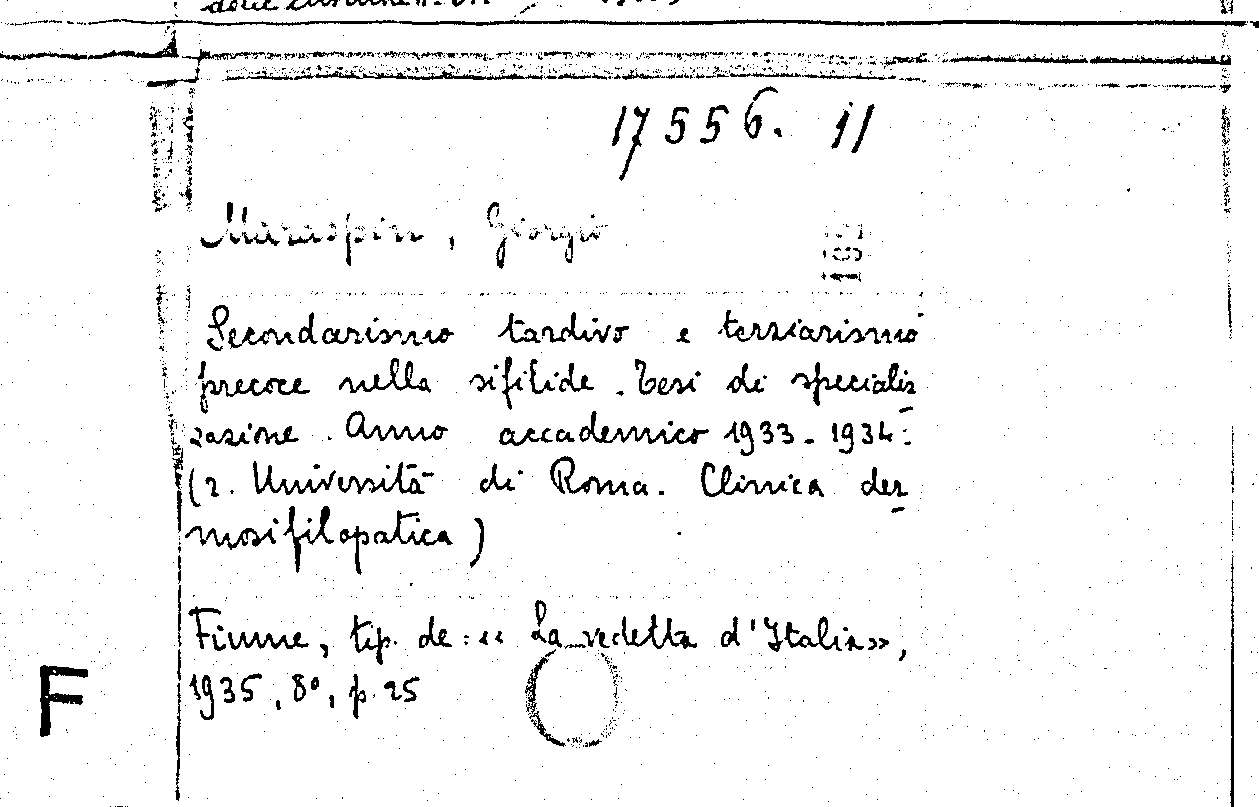 17556. 11
Maraspin, Giorgio
Secondarismo tardivo e terziarismo
precoce nella sifilide. Tesi di specializ
zazione. Anno accademico 1933-1934.
(R. Università di Roma. Clinica der
mosifilopatica)
Fiume, tip. de: «La vedetta d'Italia»,
1935, 8°, p. 25
F